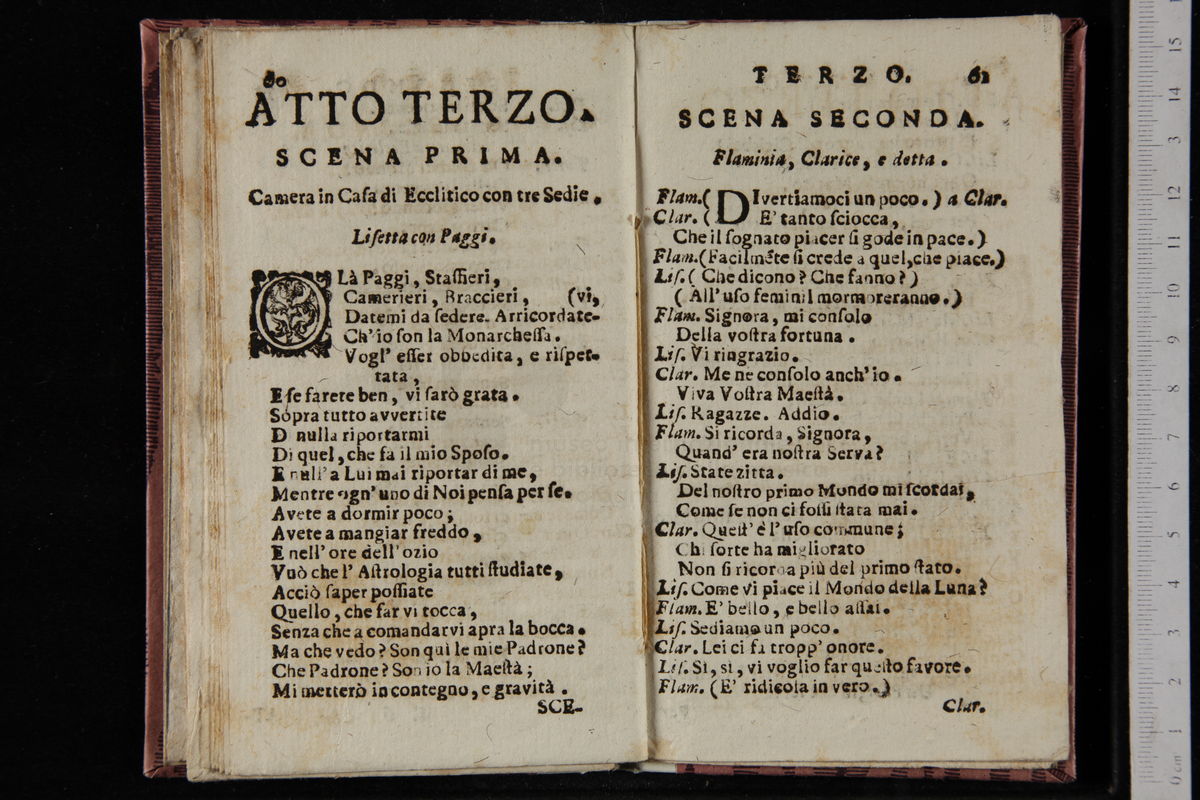 60
ATTO TERZO.
SCENA PRIMA.
Camera in Casa di Ecclitico con tre Sedie.
Lisetta con Paggi.
OLà Paggi, Staffieri,
Camerieri, Braccieri, (vi,
Datemi da sedere. Arricordate-
Ch' io son la Monarchessa.
Vogl' esser obbedita, e rispet-
tata,
E se farete ben, vi sarò grata.
Sopra tutto avvertite
Di nulla riportarmi
Di quel, che fa il mio Sposo.
E null' a Lui mai riportar di me,
Mentre ogn' uno di Noi pensa per se.
Avete a dormir poco;
Avete a mangiar freddo,
E nell' ore dell' ozio
Vuò che l' Astrologia tutti studiate,
Acciò saper possiate
Quello, che far vi tocca,
Senza che a comandarvi apra la bocca.
Ma che vedo? Son quì le mie Padrone?
Che Padrone? Son io la Maestà;
Mi metterò in contegno, e gravità.
SCE-
TERZO. 61
SCENA SECONDA.
Flaminia, Clarice, e detta.
Flam. (DIvertiamoci un poco.) a Clar.
Clar. (E' tanto sciocca,
Che il sognato piacer si gode in pace.)
Flam. (Facilmēte si crede a quel, che piace.)
Lis. (Che dicono? Che fanno?)
(All' uso feminil mormoreranno.)
Flam. Signora, mi consolo
Della vostra fortuna.
Lis. Vi ringrazio.
Clar. Me ne consolo anch' io.
Viva Vostra Maestà.
Lis. Ragazze. Addio.
Flam. Si ricorda, Signora,
Quand' era nostra Serva?
Lis. State zitta.
Del nostro primo Mondo mi scordai,
Come se non ci fossi stata mai.
Clar. Quest' è l' uso commune;
Chi sorte ha migliorato
Non si ricorda più del primo stato.
Lis. Come vi piace il Mondo della Luna?
Flam. E' bello, e bello assai.
Lis. Sediamo un poco.
Clar. Lei ci fa tropp' onore.
Lis. Sì, sì, vi voglio far questo favore.
Flam. (E' ridicola in vero.)
Clar.